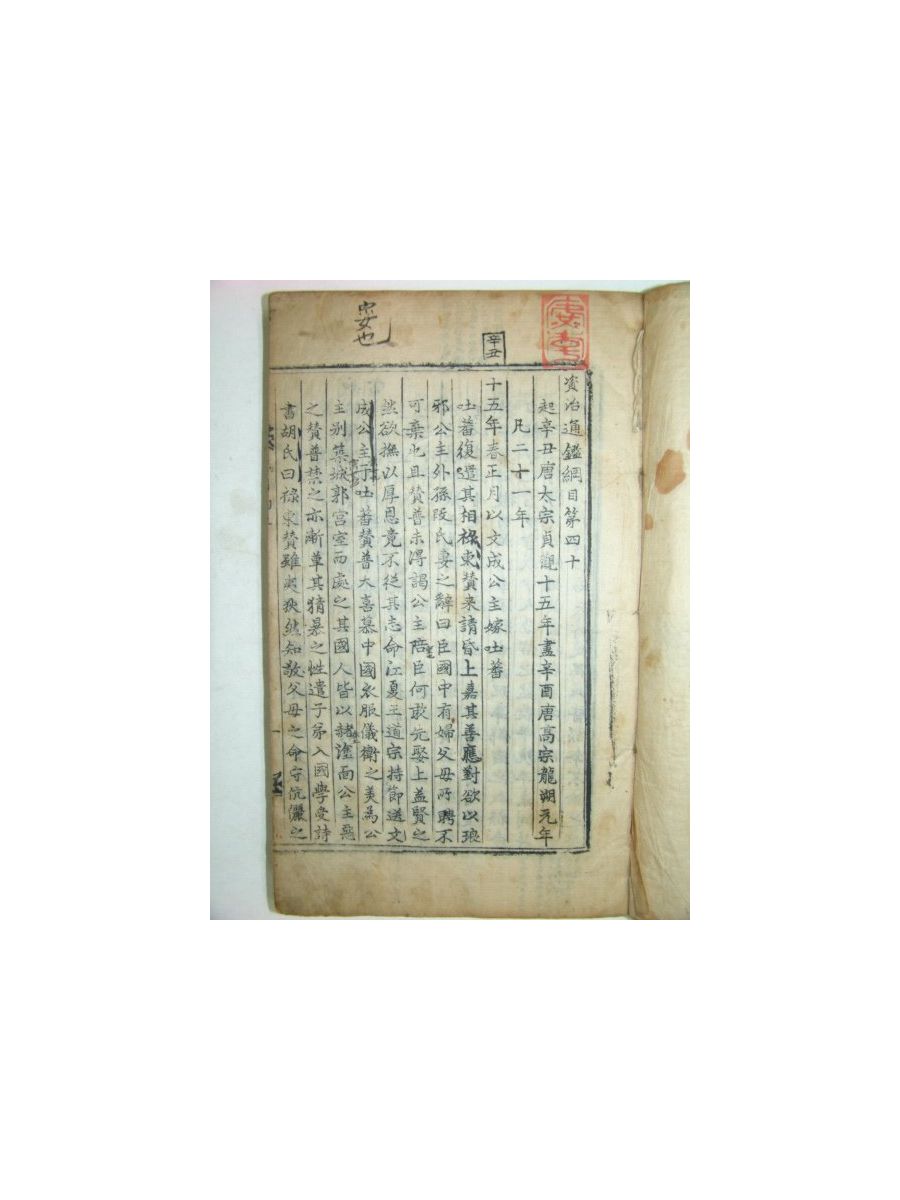 資治通鑑綱目第四十
起辛丑唐太宗貞觀十五年盡辛酉唐高宗龍湖元年
凡二十一年
辛丑
十五年春正月以文成公主嫁吐蕃
吐蕃復遣其相祿東賛来請昏上嘉其善應對欲以琅
邪公主外孫段氏妻之辭曰臣國中有婦父母所聘不
可棄也且賛普未得謁公主陪臣何敢先娶上益賢之
然欲撫以厚恩竟不從其志命江夏王道宗持節送文
成公主于吐蕃賛普大喜慕中國衣服儀衛之美為公
主别築城郭宮室而處之其國人皆以赭塗面公主惡
之賛普禁之亦漸革其猜暴之性遣子弟入國學受詩
書胡氏曰祿東賛雖夷狄然知敬父母之命守伉儷之